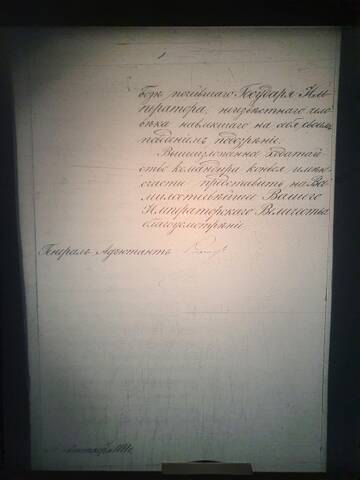 Бозѣ почившаго Государя Им-
ператора, неизвѣстнаго чело-
вѣка навлекшаго на себя своимъ
поведеніемъ подозрѣніе.
Вышеизложенное ходатай-
ство командира конвоя имѣю
счастіе представить на Все-
милостивѣйшее Вашего
Императорскаго Величества
благоусмотрѣніе.
Генералъ-Адъютантъ